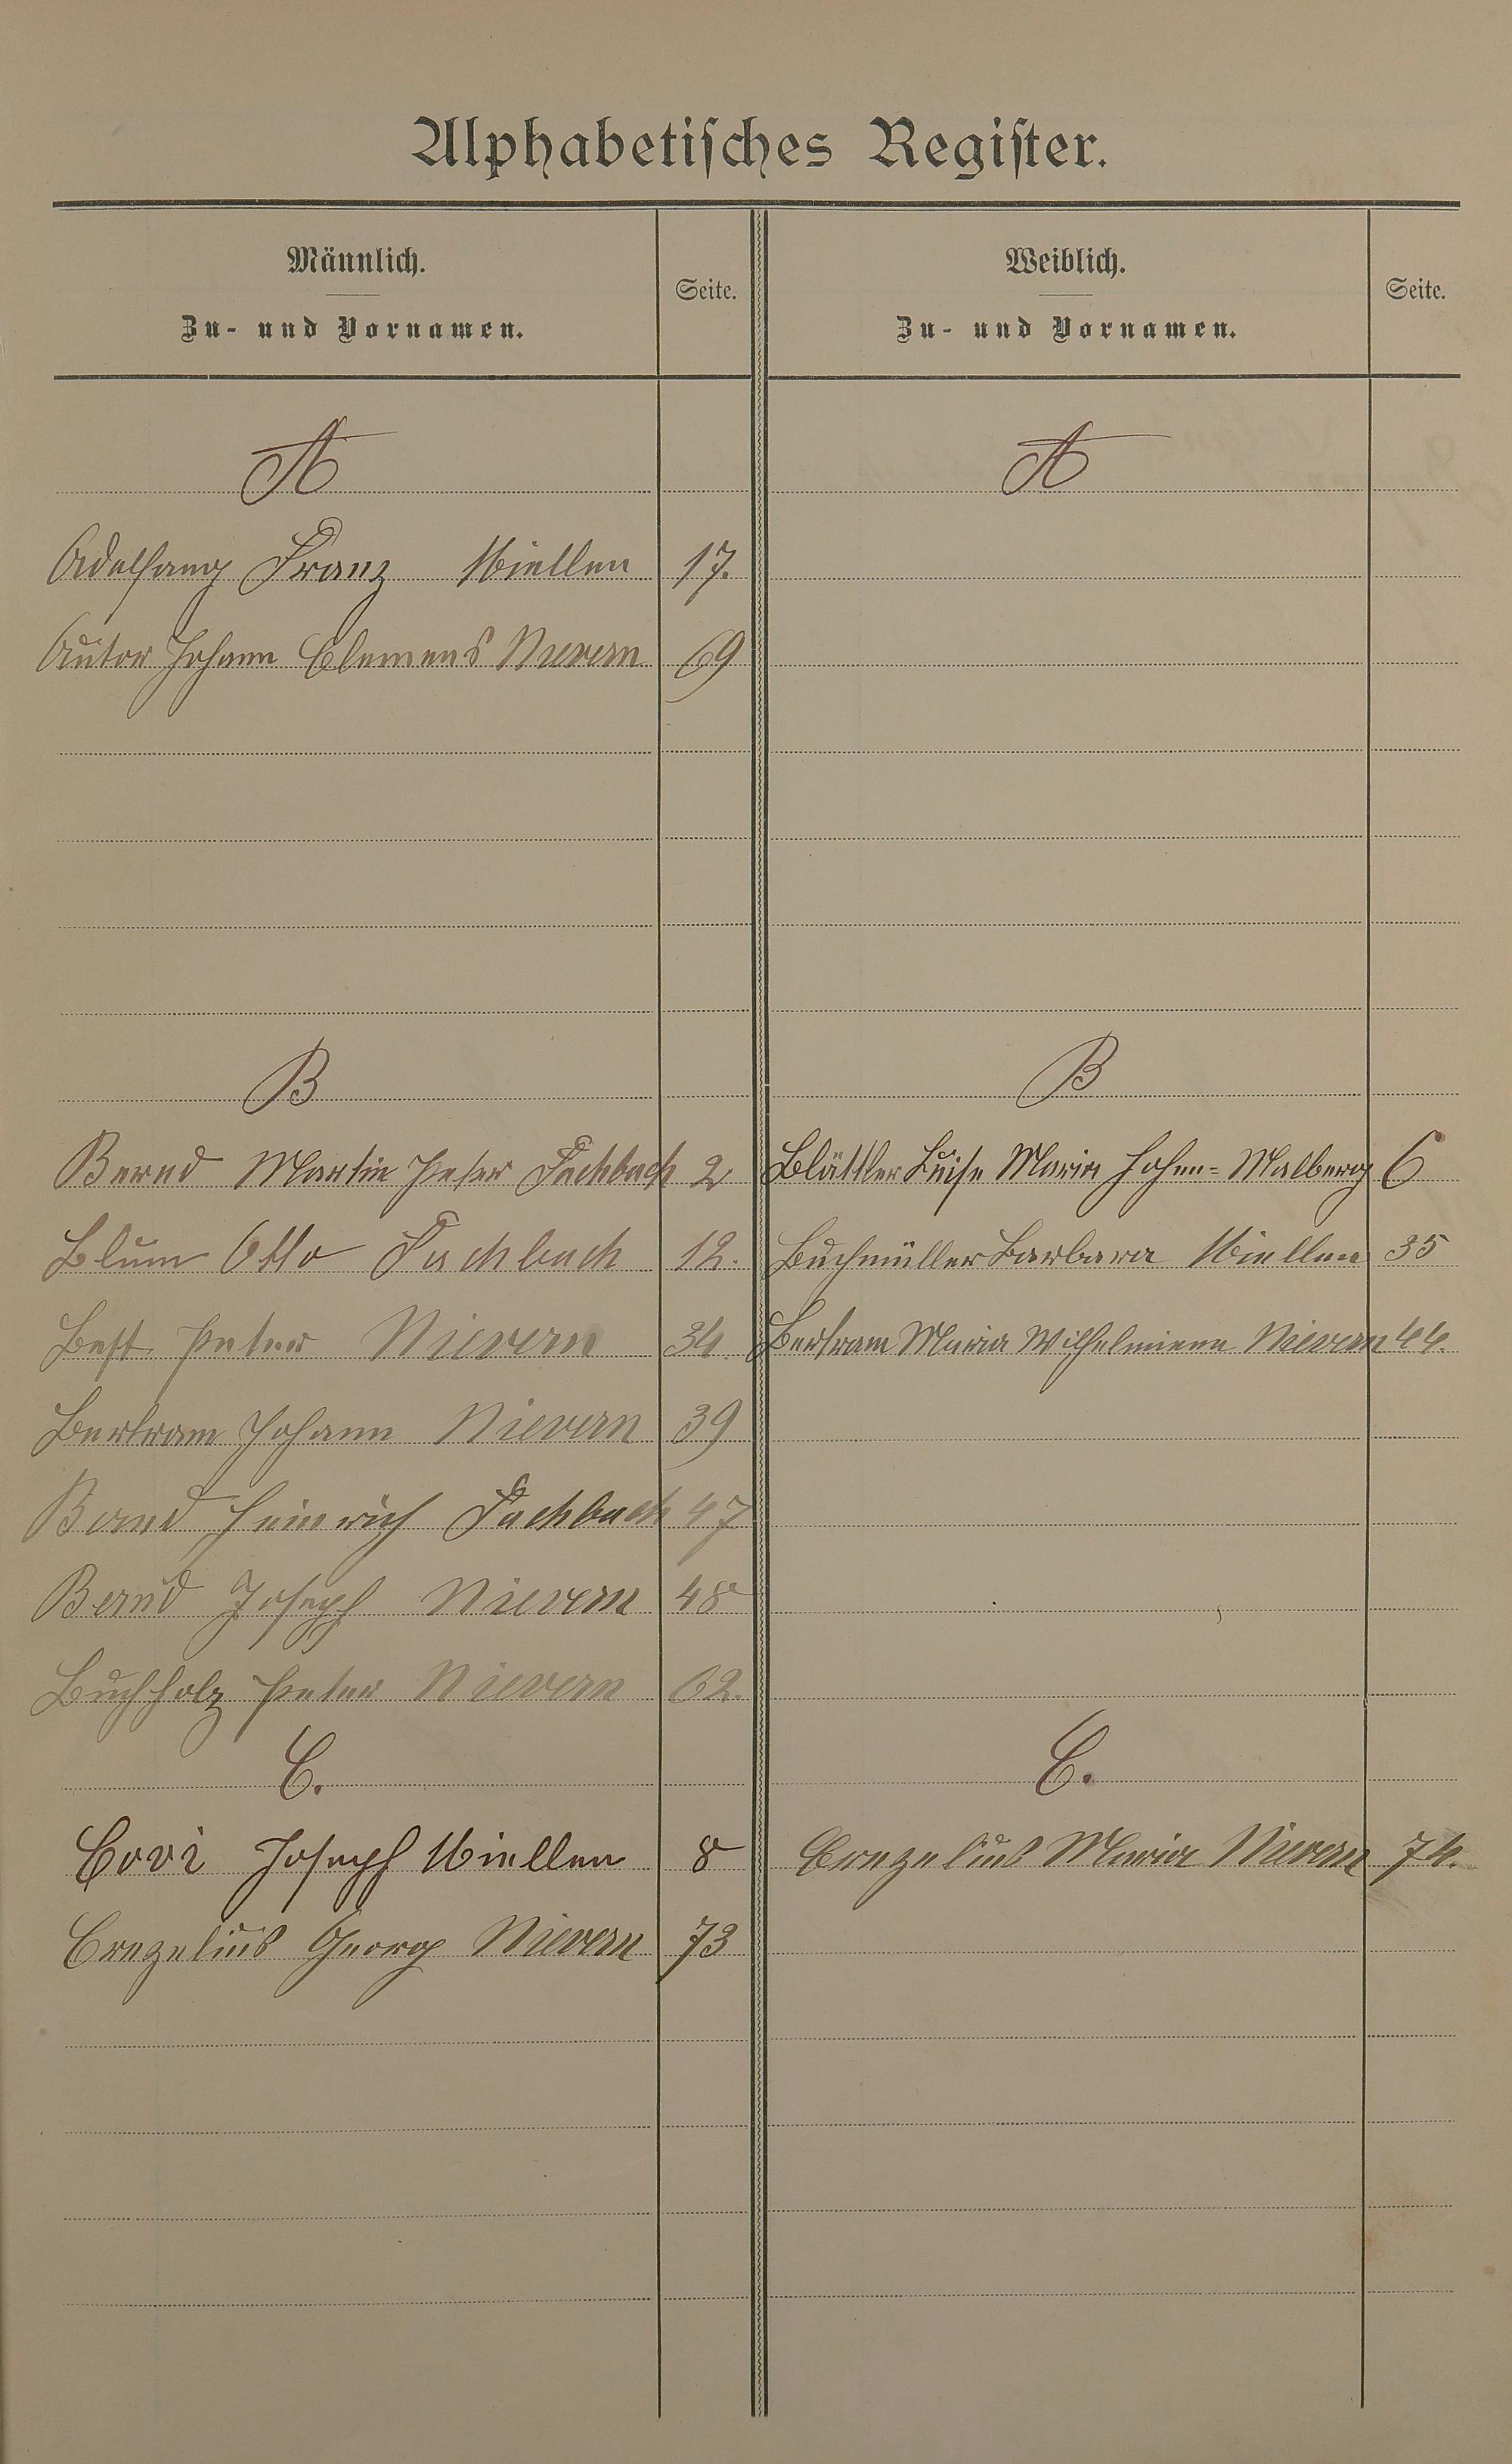 Alphabetisches Register.
Männlich.
Zu- und Vornamen.
Seite.
Weiblich.
Zu- und Vornamen.
Seite.
A
A
Adelfang Franz Miellen 17.
Autor Johann Clemens Nievern 69
B
B
Bernd Martin Peter Fachbach 2
Blättler Luise Maria Hohe=Malberg 6
Blum Otto Fachbach 12.
Buchmüller Barbara Miellen 35
Best Peter Nievern 34.
Bertram Maria Wilhelmiene Nievern 44.
Bertram Johann Nievern 39
Bernd Heinrich Fachbach 47
Bernd Joseph Nievern 48
Buchholz Peter Nievern 62.
C.
C.
Covi Joseph Miellen 8
Crezelius Maria Nievern 74.
Crezelius Georg Nievern 73